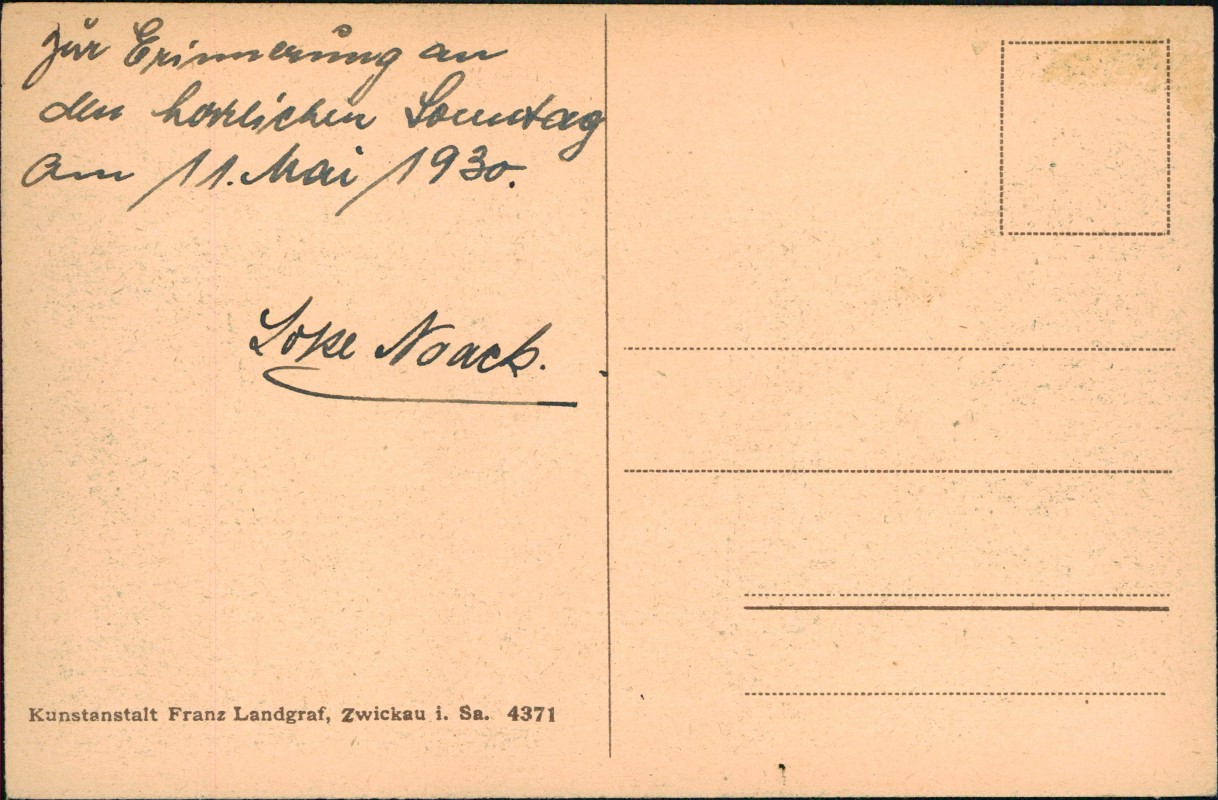 zur Erinnerung an
den herrlichen Sonntag
am 11. Mai 1930.
Noack.
Kunstanstalt Franz Landgraf, Zwickau i. Sa. 4371